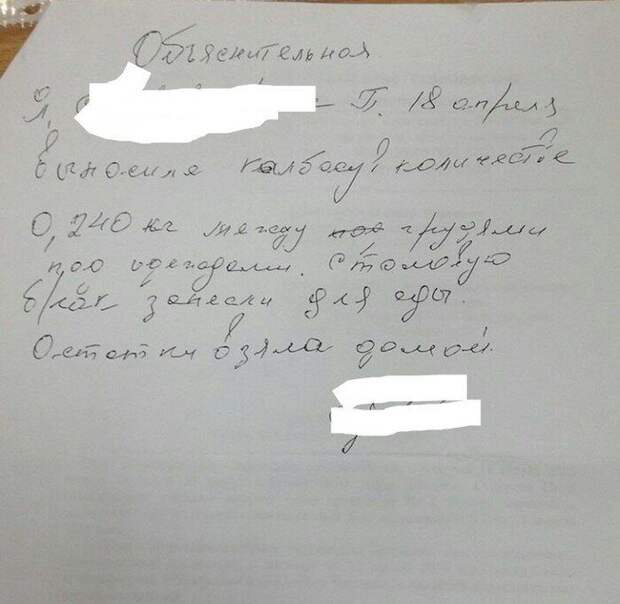 Объяснительная
Я, Г. 18 апреля
выносила колбасу, количестве
0,240 кг между грудями
под одеждами. Столовую
б/сак занесли для еды.
Остатки взяла домой.